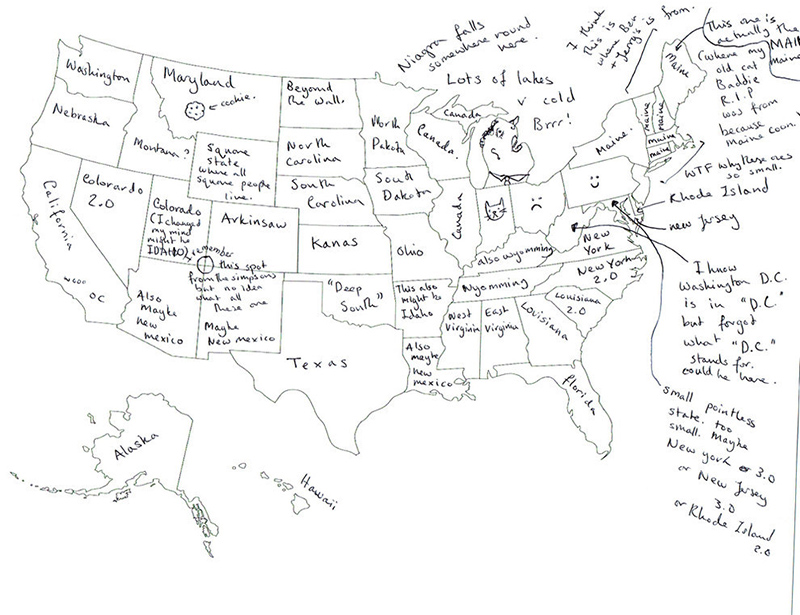 Niagra falls
somewhere round
here.
I think
this is
where Ben
+ Jerry's is
from.
This one is
actually the
MAIN
maine
(where my
old cat
Baddie
R.I.P
was from
because
maine coon.
Lots of lakes
v cold
Brrr!
Washington
Maryland
cookie.
Beyond
the wall.
North
Dakota
Canada
Canada.
Maine
maine
maine
maine
maine
Maine.
WTF why these ones
so small.
Rhode Island
new Jersey
Nebraska
Montana?
Square
state
where all
square people
live.
North
Carolina
South
Carolina
South
Dakota
California
Colorardo
2.0
Colorado
(I changed
my mind
might be
IDAHO)
Arkinsaw
Kanas
Ohio
Canada
also wyomming
New
York
New York
2.0
I know
Washington D.C.
is in "D.C"
but forgot
what "D.C."
stands for.
could be here.
remember
this spot
from the simpsons
but no idea
what all
these are
OC
Also
Mayhe
new
mexico
Mayhe
New mexico
"Deep
South"
This also
might be
Idaho
Wyomming
West
Virginia
East
Virginia
Louisiana
Louisiana
2.0
Texas
Also
mayhe
new
mexico
florida
small pointless
state. too
small. Mayhe
New york 3.0
or New Jersey
3.0
or Rhode Island
2.0
Alaska
Hawaii